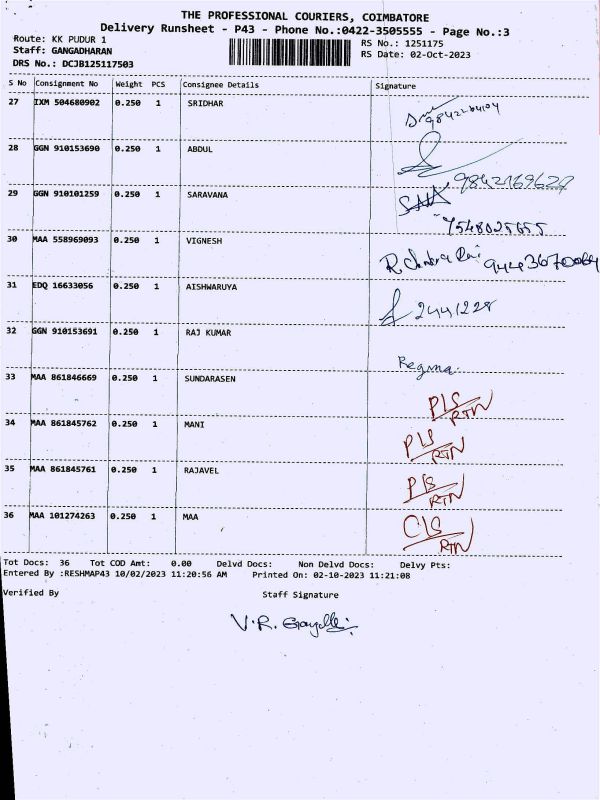 THE PROFESSIONAL COURIERS, COIMBATORE
Delivery Runsheet - P43 - Phone No.:0422-3505555 - Page No.:3
Route: KK PUDUR 1 RS No.: 1251175
Staff: GANGADHARAN RS Date: 02-Oct-2023
DRS No.: DCJB125117503
S No Consignment No Weight PCS Consignee Details Signature
27 IXM 504680902 0.250 1 SRIDHAR
28 GGN 910153690 0.250 1 ABDUL
29 GGN 910101259 0.250 1 SARAVANA
7548025655
30 MAA 558969093 0.250 1 VIGNESH
31 EDQ 16633056 0.250 1 AISHWARUYA
2441228
32 GGN 910153691 0.250 1 RAJ KUMAR
Regina
33 MAA 861846669 0.250 1 SUNDARASEN
P/S RTN
34 MAA 861845762 0.250 1 MANI
P/S RTN
35 MAA 861845761 0.250 1 RAJAVEL
P/S RTN
36 MAA 101274263 0.250 1 MAA
C/S RTN
Tot Docs: 36 Tot COD Amt: 0.00 Delvd Docs: Non Delvd Docs: Delvy Pts:
Entered By :RESHMAP43 10/02/2023 11:20:56 AM Printed On: 02-10-2023 11:21:08
Verified By Staff Signature